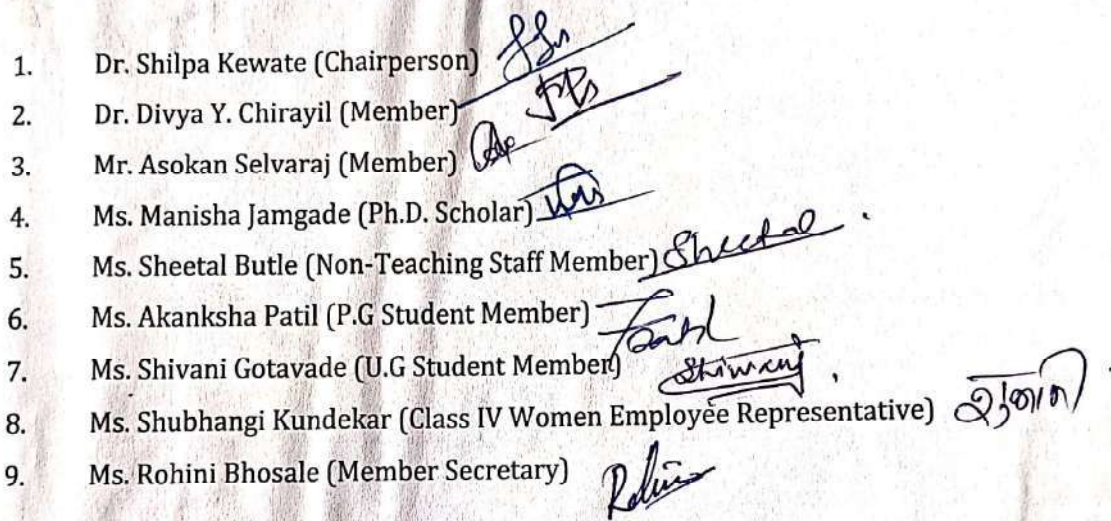 1. Dr. Shilpa Kewate (Chairperson)
2. Dr. Divya Y. Chirayil (Member)
3. Mr. Asokan Selvaraj (Member)
4. Ms. Manisha Jamgade (Ph.D. Scholar)
5. Ms. Sheetal Butle (Non-Teaching Staff Member) Sheetal
6. Ms. Akanksha Patil (P.G Student Member)
7. Ms. Shivani Gotavade (U.G Student Member) Shivani
8. Ms. Shubhangi Kundekar (Class IV Women Employee Representative)
9. Ms. Rohini Bhosale (Member Secretary)